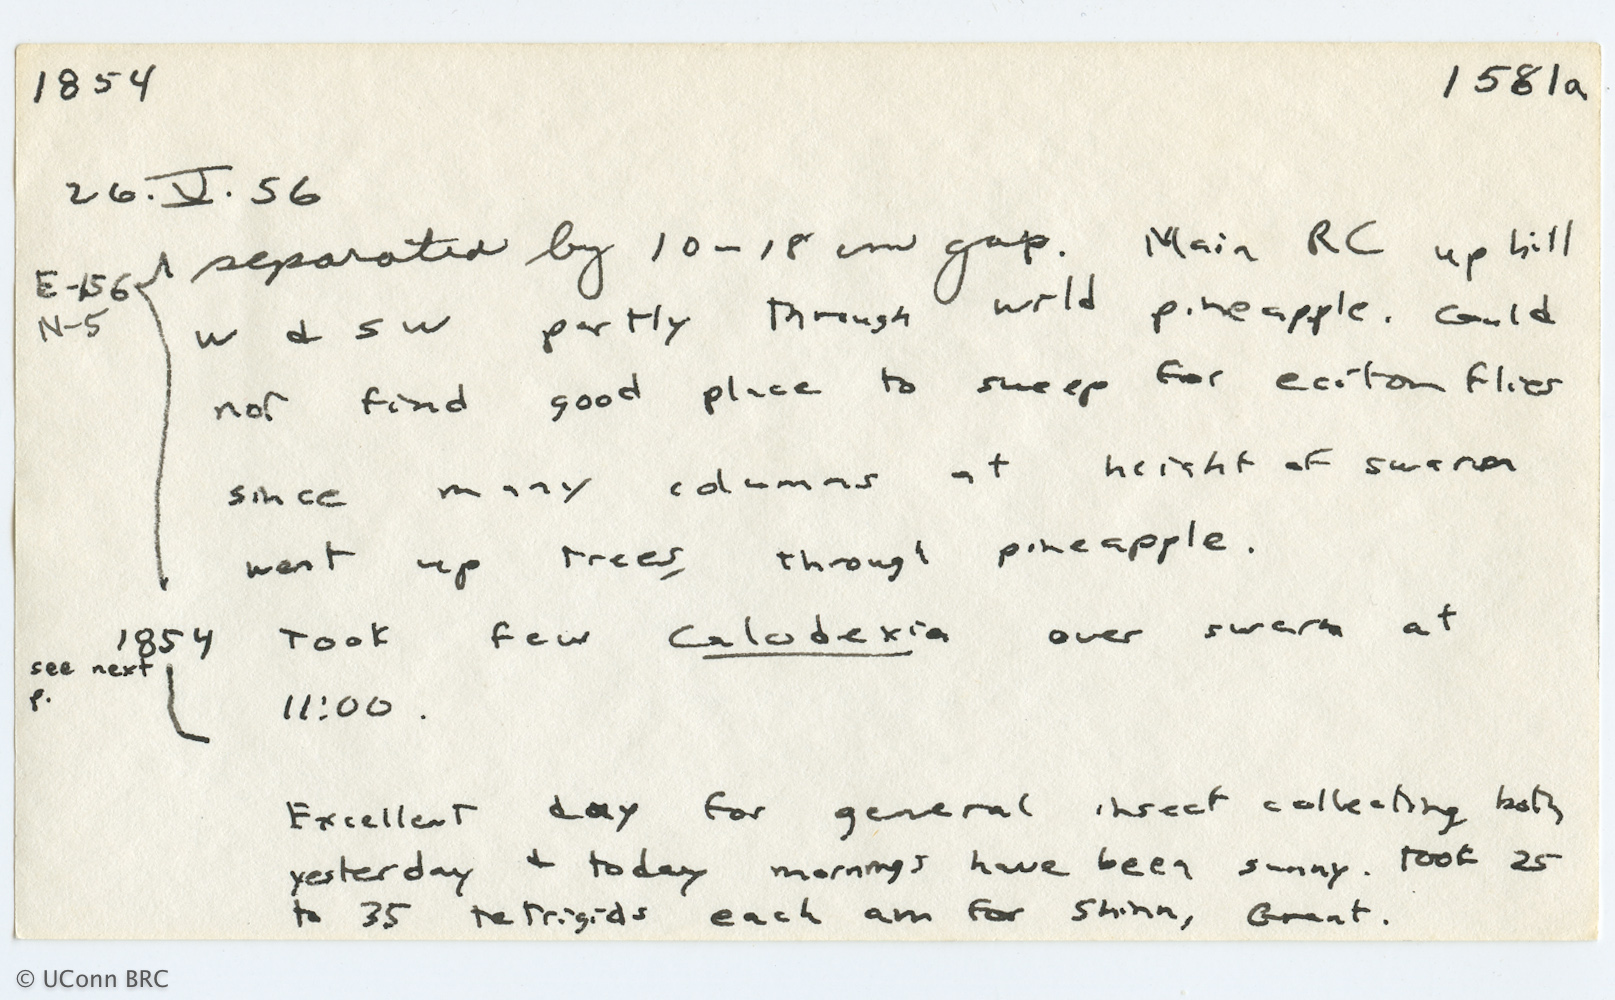 1854 1581a
26.V.56
E-156 separated by 10-18 cm gap. Main RC up hill
N-5 W & SW partly through wild pineapple. Could
not find good place to sweep for eciton flies
since many columns at height of swarm
went up trees, through pineapple.
1854 Took few Calodexia over swarm at
see next
p. 11:00.
Excellent day for general insect collecting both
yesterday & today mornings have been sunny. Took 25
to 35 tetrigids each am for Shinn, Grant.
© UConn BRC